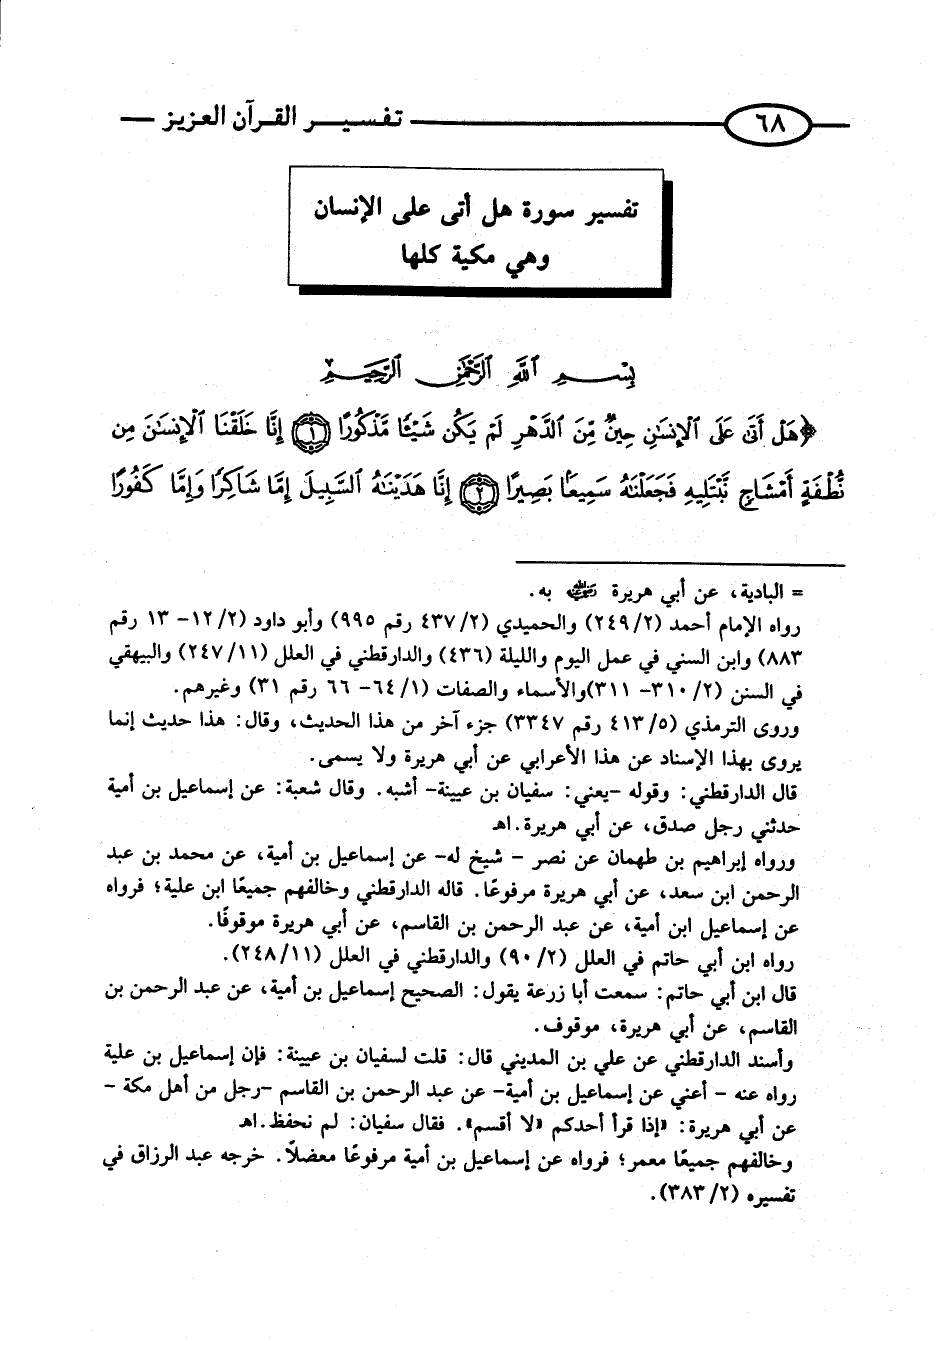 ٦٨ تفسير القرآن العزيز
تفسير سورة هل أتى على الإنسان
وهي مكية كلها
بِسْمِ ٱللَّهِ ٱلرَّحْمَٰنِ ٱلرَّحِيمِ
﴿هَلْ أَتَىٰ عَلَى ٱلْإِنسَٰنِ حِينٌ مِّنَ ٱلدَّهْرِ لَمْ يَكُن شَيْـًٔا مَّذْكُورًا ۝١ إِنَّا خَلَقْنَا ٱلْإِنسَٰنَ مِن
نُّطْفَةٍ أَمْشَاجٍ نَّبْتَلِيهِ فَجَعَلْنَٰهُ سَمِيعًۢا بَصِيرًا ۝٢ إِنَّا هَدَيْنَٰهُ ٱلسَّبِيلَ إِمَّا شَاكِرًا وَإِمَّا كَفُورًا
= البادية، عن أبي هريرة رضي الله عنه به.
رواه الإمام أحمد (٢/ ٢٤٩) والحميدي (٢/ ٤٣٧ رقم ٩٩٥) وأبو داود (٢/ ١٢- ١٣ رقم
٨٨٣) وابن السني في عمل اليوم والليلة (٤٣٦) والدارقطني في العلل (١١/ ٢٤٧) والبيهقي
في السنن (٢/ ٣١٠- ٣١١)والأسماء والصفات (١/ ٦٤- ٦٦ رقم ٣١) وغيرهم.
وروى الترمذي (٥/ ٤١٣ رقم ٣٣٤٧) جزء آخر من هذا الحديث، وقال: هذا حديث إنما
يروى بهذا الإسناد عن هذا الأعرابي عن أبي هريرة ولا يسمى.
قال الدارقطني: وقوله -يعني: سفيان بن عيينة- أشبه. وقال شعبة: عن إسماعيل بن أمية
حدثني رجل صدق، عن أبي هريرة.اهـ
ورواه إبراهيم بن طهمان عن نصر - شيخ له- عن إسماعيل بن أمية، عن محمد بن عبد
الرحمن ابن سعد، عن أبي هريرة مرفوعًا. قاله الدارقطني وخالفهم جميعًا ابن علية؛ فرواه
عن إسماعيل ابن أمية، عن عبد الرحمن بن القاسم، عن أبي هريرة موقوفًا.
رواه ابن أبي حاتم في العلل (٢/ ٩٠) والدارقطني في العلل (١١/ ٢٤٨).
قال ابن أبي حاتم: سمعت أبا زرعة يقول: الصحيح إسماعيل بن أمية، عن عبد الرحمن بن
القاسم، عن أبي هريرة، موقوف.
وأسند الدارقطني عن علي بن المديني قال: قلت لسفيان بن عيينة: فإن إسماعيل بن علية
رواه عنه - أعني عن إسماعيل بن أمية- عن عبد الرحمن بن القاسم -رجل من أهل مكة -
عن أبي هريرة: «إذا قرأ أحدكم «لا أقسم». فقال سفيان: لم نحفظ.اهـ
وخالفهم جميعًا معمر؛ فرواه عن إسماعيل بن أمية مرفوعًا معضلاً. خرجه عبد الرزاق في
تفسيره (٢/ ٣٨٣).